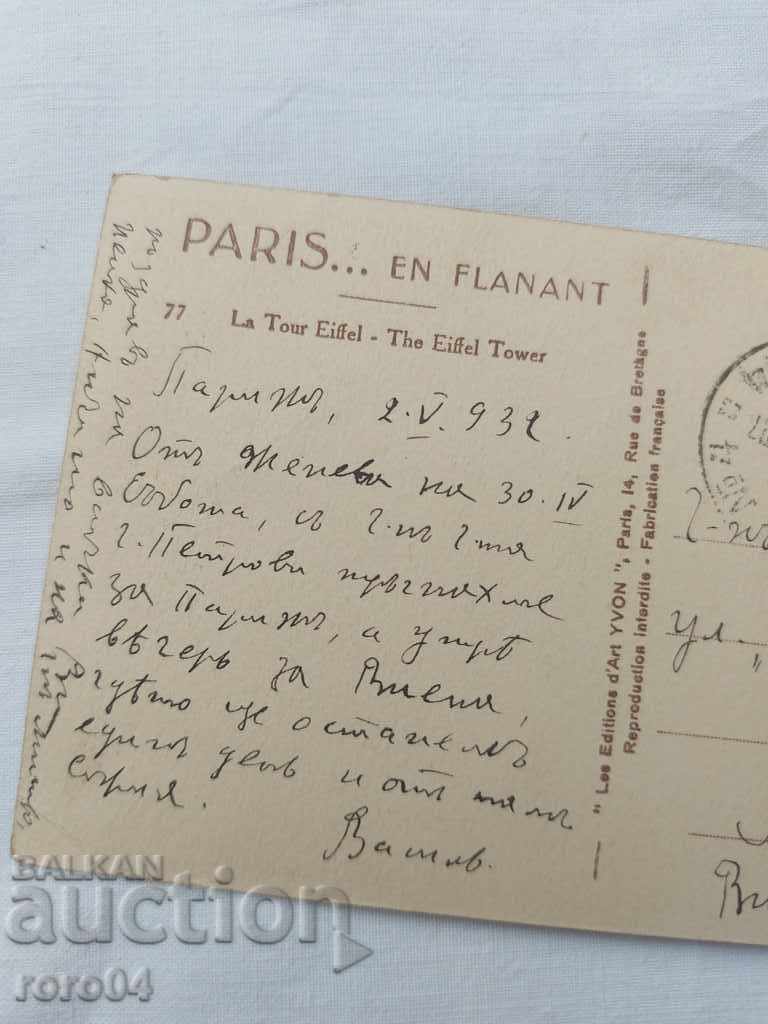 PARIS... EN FLANANT
77 La Tour Eiffel - The Eiffel Tower
Парижъ, 2.V.932.
Отъ Женева на 30.IV
събота, съ г-нъ г-жа
г. Петрови тръгнахме
за Парижъ, а утрѣ
вѣчерь за Виена,
гдѣто ще останемъ
единъ день и отъ тамъ
София.
поздравъ на всички
" Les Editions d'Art YVON ", Paris, 14, Rue de Bretagne
Reproduction interdite - Fabrication française
Ул.
BALKAN
auction
roro04